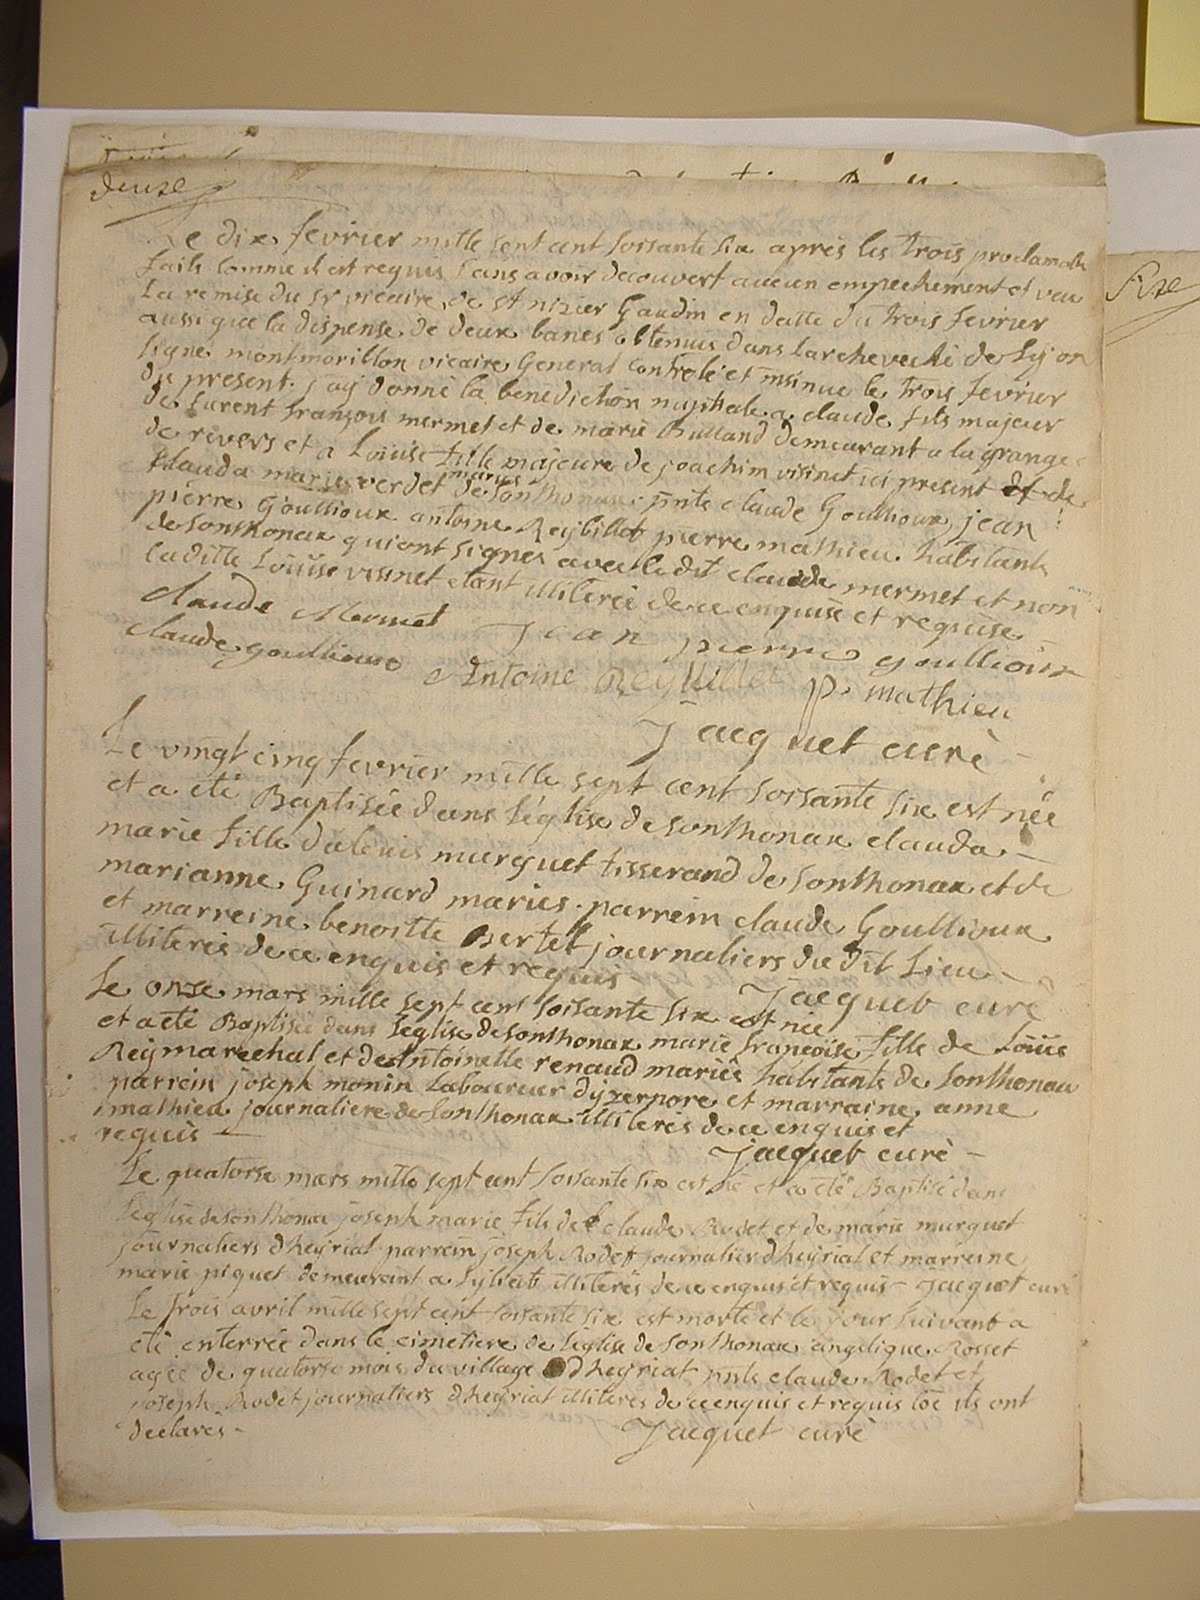 deuze
Le dix fevrier mille sept cent soisante six après les trois proclamations
faits comme il est requis sans avoir decouvert aucun empechement et veu
La remise du sr vicaire de st nizier Gaudin en datte du trois fevrier
aussi que la dispense de deux bancs obtenus dans larcheveché de Lyon
signé montmorillon vicaire General controlé et insinue le trois fevrier
du present. j ay donné la benediction nuptiale a claude fils majeur
de furent françois mermet et de marie Bulland demeurant a la grange
de rivers et a Loüise fille majeure de joachim visinet ici present et de
Clauda marie verdet mariés de sonthonax. pnts claude Goullioux, jean
pierre Goullioux antoine Reybillet pierre mathieu. habitants
de sonthonax qui ont signés avec le dit claude mermet et non
la ditte Loüise visinet etant illiterée de ce enquise et requise
claude Mermet jean pierre goullioux
claude goullioux Antoine Reybillet p. mathieu
Jacquet curé
Le vingt cinq fevrier mille sept cent soisante six est née
et a eté Baptisée dans l'église de sonthonax clauda
marie fille de louis murguet tisserand de sonthonax et de
marianne Guinard mariés. parrein claude Goullioux
et marreine benoitte Bertet journaliers du dit Lieu
illiterés de ce enquis et requis
Jacquet curé
Le onze mars mille sept cent soisante six est née
et a eté Baptisée dans l'eglise de sonthonax marie françoise fille de Loüis
Rey marechal et de antoinette renaud mariés habitants de sonthonax
parrein joseph monin Laboureur dyzernore et marraine anne
mathieu journaliere de sonthonax illiterés de ce enquis et
requis
Jacquet curé
Le quatorse mars mille sept cent soisante six est né et a eté Baptisé dans
l'eglise de sonthonax joseph marie fils de claude Rodet et de marie murguet
journaliers d'heyriat parrein joseph Rodet journalier d'heyriat et marreine
marie piquet demeurant a Lylieat illiterés de ce enquis et requis Jacquet curé
Le trois avril mille sept cent soisante six est morte et le jour suivant a
eté enterrée dans le cimetiere de l'eglise de sonthonax angelique Rosset
agée de quatorse mois du village d'heyriat pnts claude Rodet et
joseph Rodet journaliers d'heyriat illiterés de ce enquis et requis còe ils ont
declarés
Jacquet curé